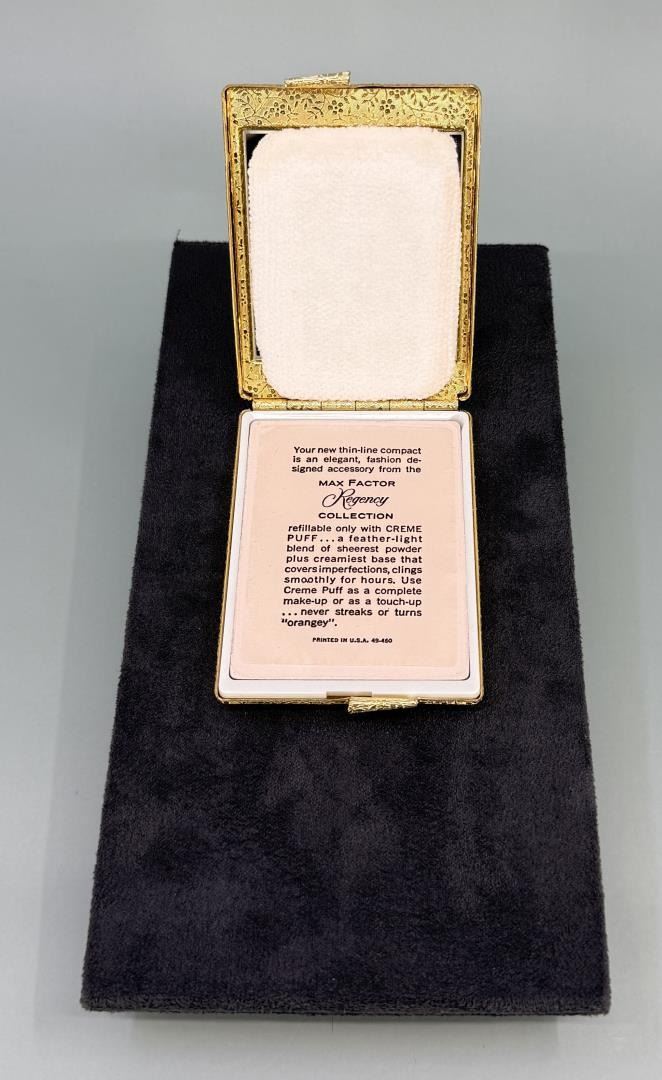 Your new thin-line compact
is an elegant, fashion de-
signed accessory from the
MAX FACTOR
Regency
COLLECTION
refillable only with CREME
PUFF...a feather-light
blend of sheerest powder
plus creamiest base that
covers imperfections, clings
smoothly for hours. Use
Creme Puff as a complete
make-up or as a touch-up
...never streaks or turns
"orangey".
PRINTED IN U.S.A. 49-460